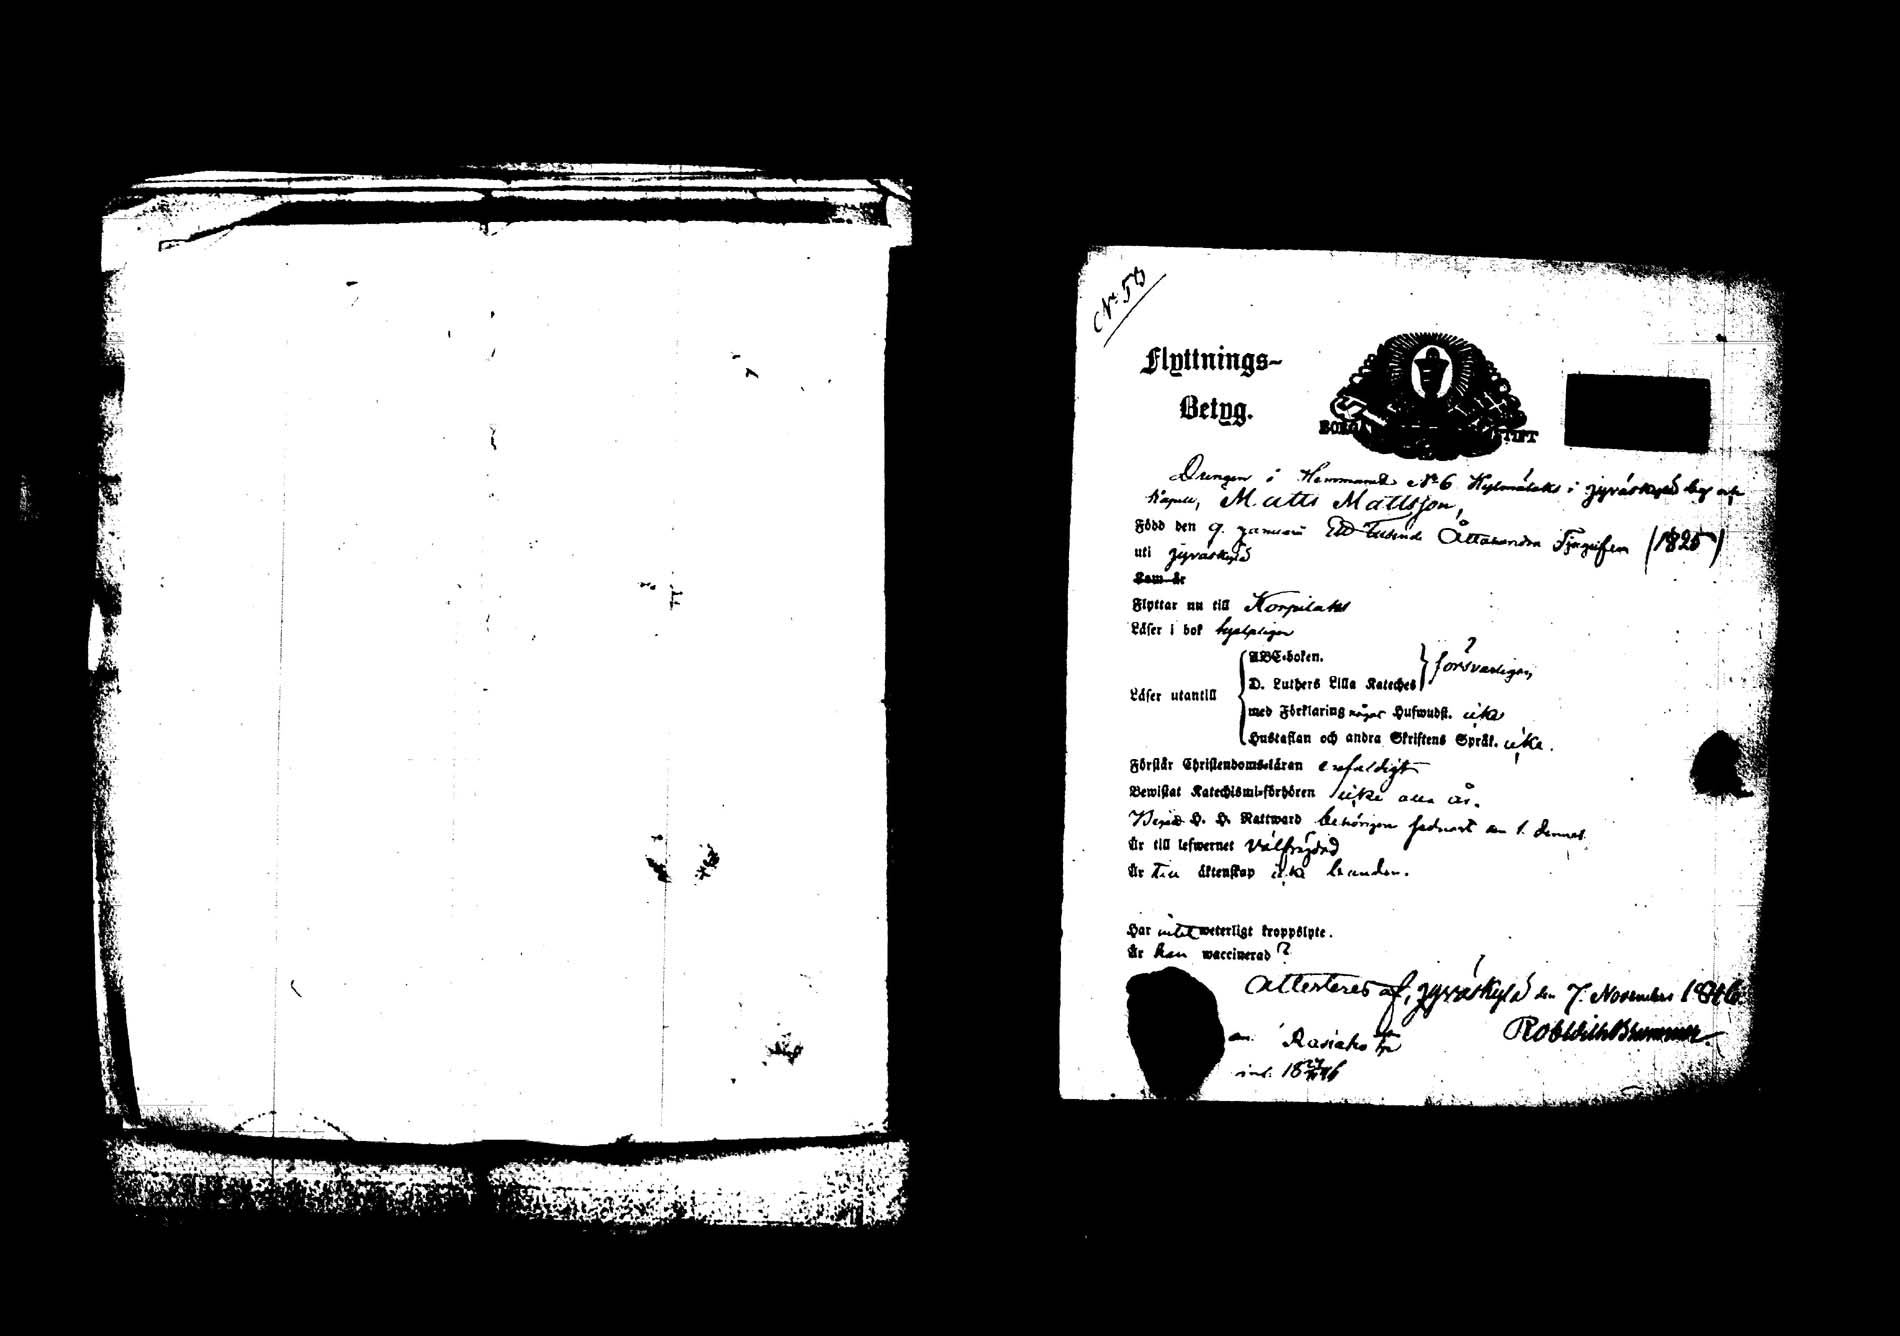 No 50
Flyttnings-
Betyg.
BORGÅ STIFT
Drengen i Hemmanet No 6 i Jyväskylä
Kapell, Matts Mattsson,
Född den 9. Januari Ett tusende Åttahundra Tjugufem (1825)
uti Jyväskylä
Som är
Flyttar nu till Korpilaks
Läser i bok hjelpligen
ABC-boken.
försvarligen
D. Luthers Lilla Kateches
Läser utantill
med Förklaring något Hufwudst. icke
Hustaflan och andra Skriftens Språk. icke.
Förstår Christendoms-läran enfaldigt
Bewistat Katechismi-förhören icke alla år.
Begådt H. H. Nattward behörigen sednast den 1. dennes.
Är till lefwernet välfrejdad
Är till äktenskap icke bunden.
Har intet weterligt kroppslyte.
Är han waccinerad?
Attesteras af, Jyväskylä den 7. November 1846
Rob Wilh Brummer.
int. 18 46